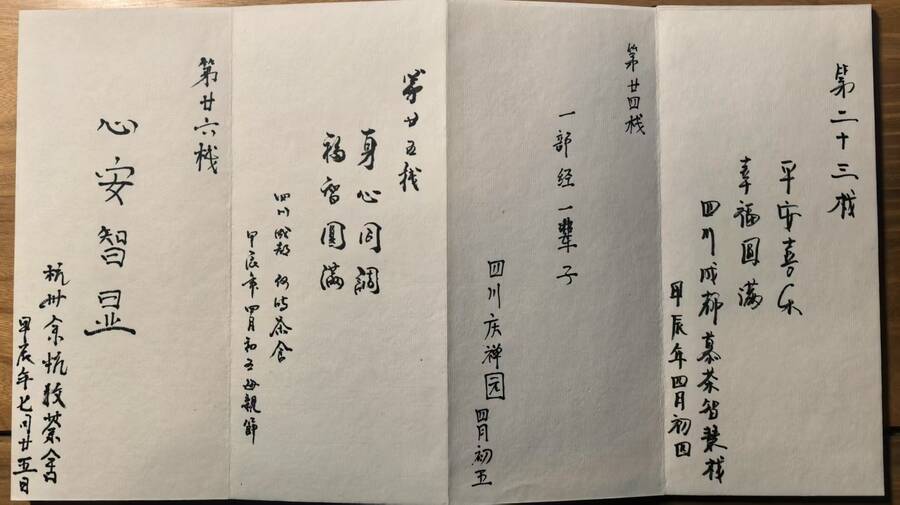 第二十三栈
平安喜乐
幸福圆满
四川成都慕茶智慧栈
甲辰年四月初四
第廿四栈
一部经一辈子
四川庆禅园 四月初五
第廿五栈
身心同調
福智圓滿
四川成都 茶舍
甲辰年四月初五母親節
第廿六栈
心安智显
杭州余杭茶舍
甲辰年七月廿五日